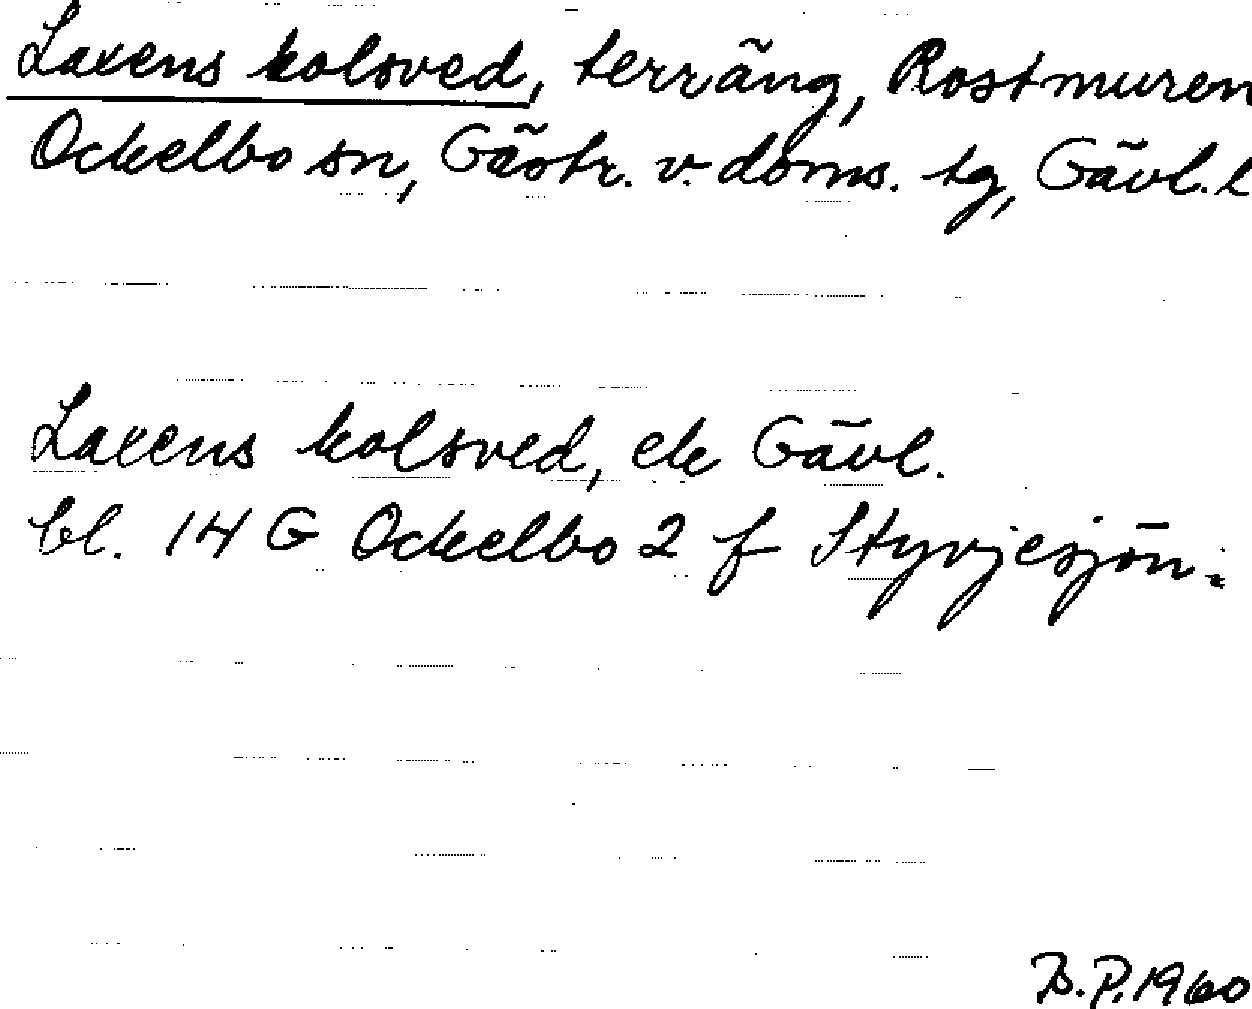 Laxens kolsved, terräng, Rostmuren
Ockelbo sn, Gästr. v. doms. tg, Gävl. l
Laxens kolsved, ek Gävl.
bl. 14 G Ockelbo 2 f Styvjesjön.
B.P. 1960